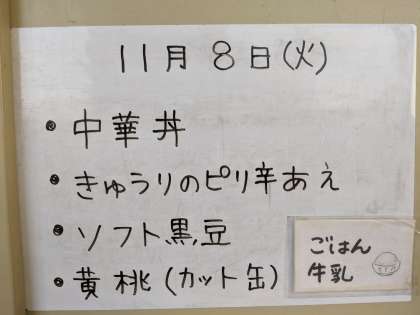 11月8日(火)
• 中華丼
• きゅうりのピリ辛あえ
• ソフト黒豆
• 黄桃(カット缶)
ごはん
牛乳